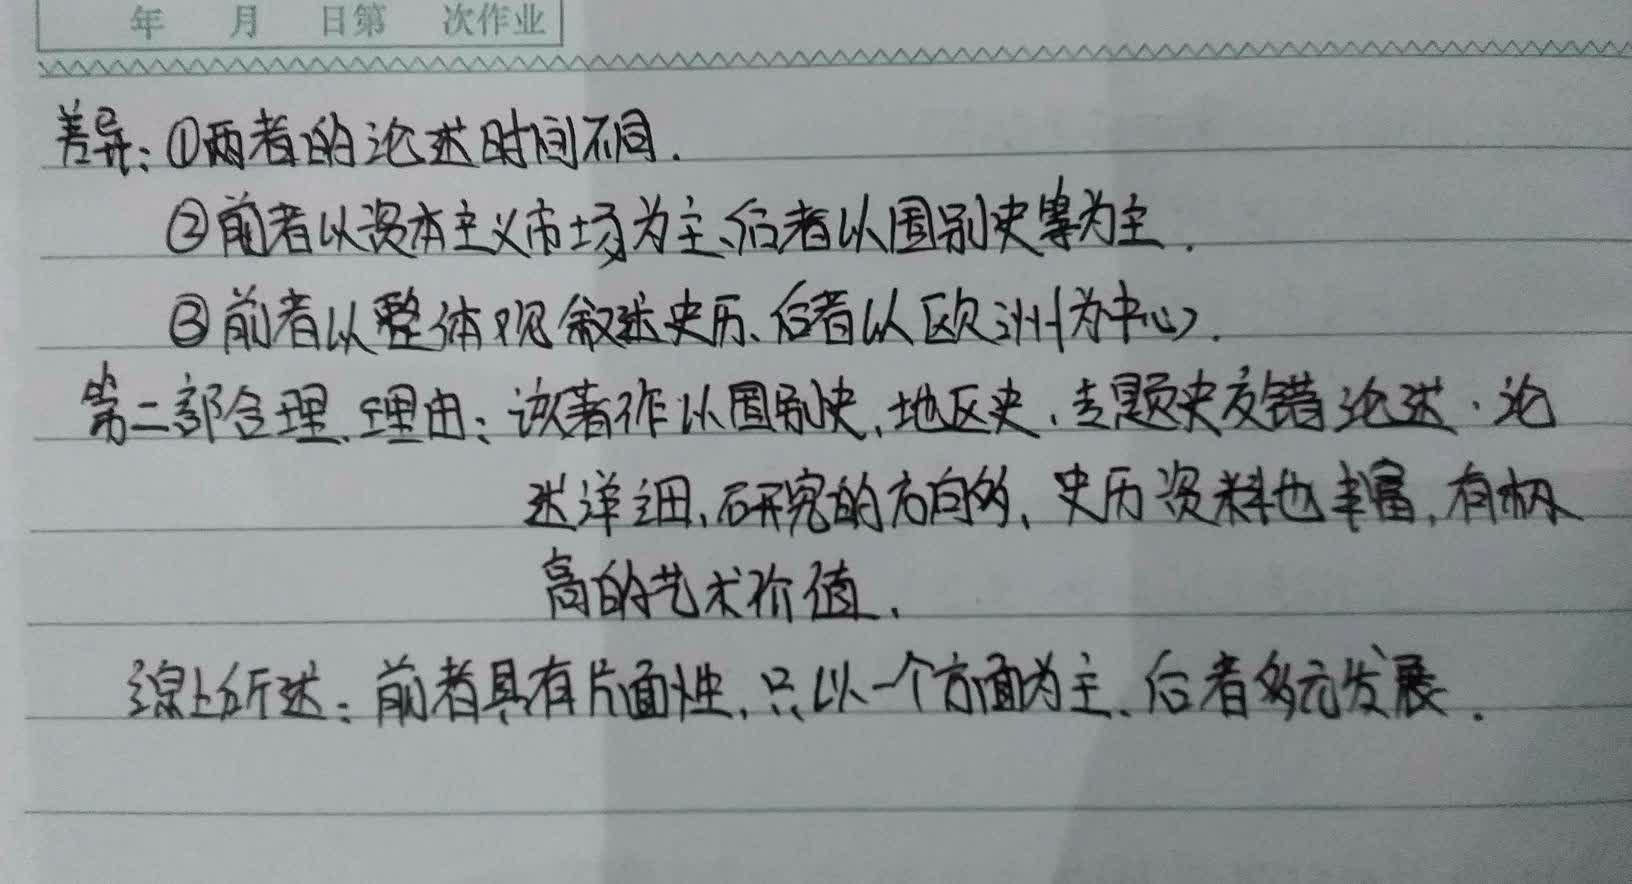 年 月 日第 次作业
差异:①两者的论述时间不同.
②前者以资本主义市场为主、后者以国别史等为主.
③前者以整体观叙述史历、后者以区欧洲为中心.
第二部合理、理由:该著作以国别史、地区史、专题史交错论述.论
述详细、研究的方向多、史历资料也丰富,有极
高的艺术价值.
综上所述:前者具有片面性、只以一个方面为主、后者多元发展.